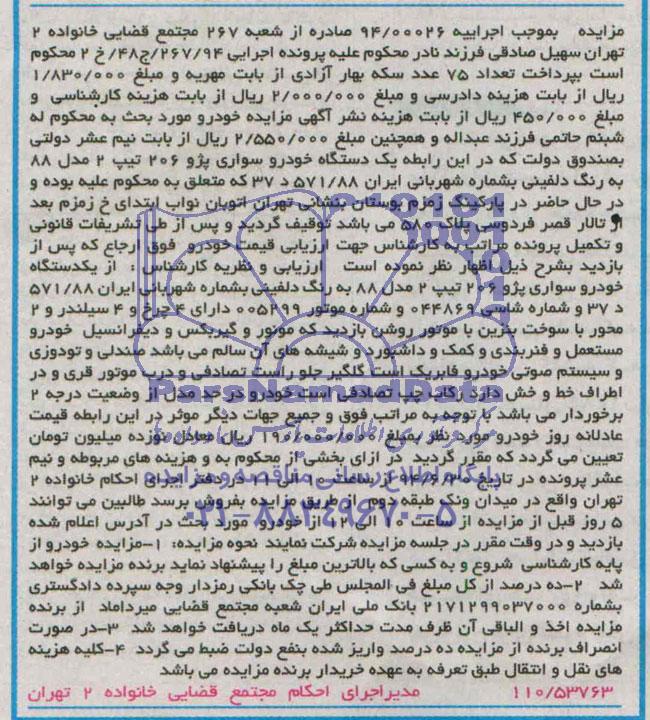 مزایده بموجب اجراییه ۹۴/۰۰۰۲۶ صادره از شعبه ۲۶۷ مجتمع قضایی خانواده ۲
تهران سهیل صادقی فرزند نادر محکوم علیه پرونده اجرایی ۲۶۷/۹۴/ج۴۸/خ ۲ محکوم
است بپرداخت تعداد ۷۵ عدد سکه بهار آزادی از بابت مهریه و مبلغ ۱/۸۳۰/۰۰۰
ریال از بابت هزینه دادرسی و مبلغ ۲/۰۰۰/۰۰۰ ریال از بابت هزینه کارشناسی و
مبلغ ۴۵۰/۰۰۰ ریال از بابت هزینه نشر آگهی مزایده خودرو مورد بحث به محکوم له
شبنم حاتمی فرزند عبداله و همچنین مبلغ ۲/۵۵۰/۰۰۰ ریال از بابت نیم عشر دولتی
بصندوق دولت که در این رابطه یک دستگاه خودرو سواری پژو ۲۰۶ تیپ ۲ مدل ۸۸
به رنگ دلفینی بشماره شهربانی ایران ۵۷۱/۸۸ د ۳۷ که متعلق به محکوم علیه بوده و
در حال حاضر در پارکینگ زمزم بوستان بنشانی تهران اتوبان نواب ابتدای خ زمزم بعد
از تالار قصر فردوسی پلاک ۵۸۰ می باشد توقیف گردید و پس از طی تشریفات قانونی
و تکمیل پرونده مراتب به کارشناس جهت ارزیابی قیمت خودرو فوق ارجاع که پس از
بازدید بشرح ذیل اظهار نظر نموده است ارزیابی و نظریه کارشناس : از یکدستگاه
خودرو سواری پژو ۲۰۶ تیپ ۲ مدل ۸۸ به رنگ دلفینی بشماره شهربانی ایران ۵۷۱/۸۸
د ۳۷ و شماره شاسی ۰۴۴۸۶۹ و شماره موتور ۰۰۵۲۹۹ دارای ۴ چرخ و ۴ سیلندر و ۲
محور با سوخت بنزین با موتور روشن بازدید که موتور و گیربکس و دیفرانسیل خودرو
مستعمل و فنربندی و کمک و داشبورد و شیشه های آن سالم می باشد صندلی و تودوزی
و سیستم صوتی خودرو فابریک است گلگیر جلو راست تصادفی و درب موتور قری و در
اطراف خط و خش دارد رکاب چپ تصادفی است خودرو در حد مدل از وضعیت درجه ۲
برخوردار می باشد با توجه به مراتب فوق و جمیع جهات دیگر موثر در این رابطه قیمت
عادلانه روز خودرو مورد نظر بمبلغ ۱۹۰/۰۰۰/۰۰۰ ریال معادل نوزده میلیون تومان
تعیین می گردد که مقرر گردید در ازای بخشی از محکوم به و هزینه های مربوطه و نیم
عشر پرونده در تاریخ ۹۴/۶/۳۰ از ساعت ۱۰ الی ۱۱ در دفتر اجرای احکام خانواده ۲
تهران واقع در میدان ونک طبقه دوم از طریق مزایده بفروش برسد طالبین می توانند
۵ روز قبل از مزایده از ساعت ۱۰ الی ۱۲ از خودرو مورد بحث در آدرس اعلام شده
بازدید و در وقت مقرر در جلسه مزایده شرکت نمایند نحوه مزایده: ۱-مزایده خودرو از
پایه کارشناسی شروع و به کسی که بالاترین مبلغ را پیشنهاد نماید برنده مزایده خواهد
شد ۲-ده درصد از کل مبلغ فی المجلس طی چک بانکی رمزدار وجه سپرده دادگستری
بشماره ۲۱۷۱۲۹۹۰۳۷۰۰۰ بانک ملی ایران شعبه مجتمع قضایی میرداماد از برنده
مزایده اخذ و الباقی آن ظرف مدت حداکثر یک ماه دریافت خواهد شد ۳-در صورت
انصراف برنده از مزایده ده درصد واریز شده بنفع دولت ضبط می گردد ۴-کلیه هزینه
های نقل و انتقال طبق تعرفه به عهده خریدار برنده مزایده می باشد
۱۱۰/۵۳۷۶۳ مدیراجرای احکام مجتمع قضایی خانواده ۲ تهران
ParsNamadData
پایگاه اطلاع رسانی مناقصه و مزایده
۰۲۱-۸۸۳۴۹۶۷۰-۵